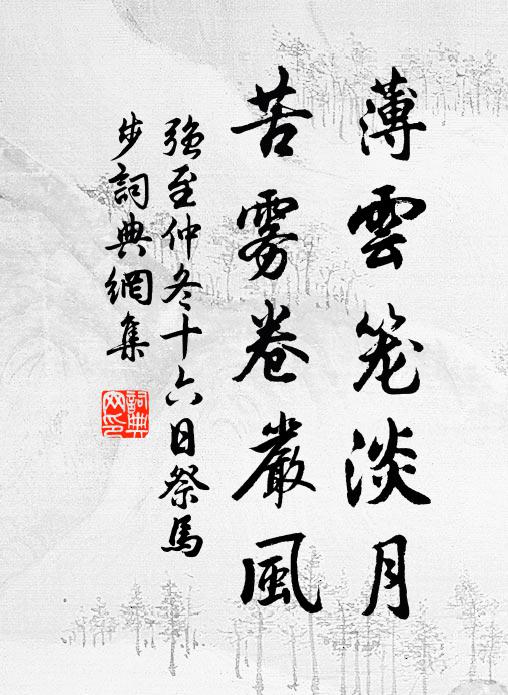 薄雲笼淡月
苦雾卷嚴風
強至仲冬十六日祭馬
步詞典網集
詞典
网印